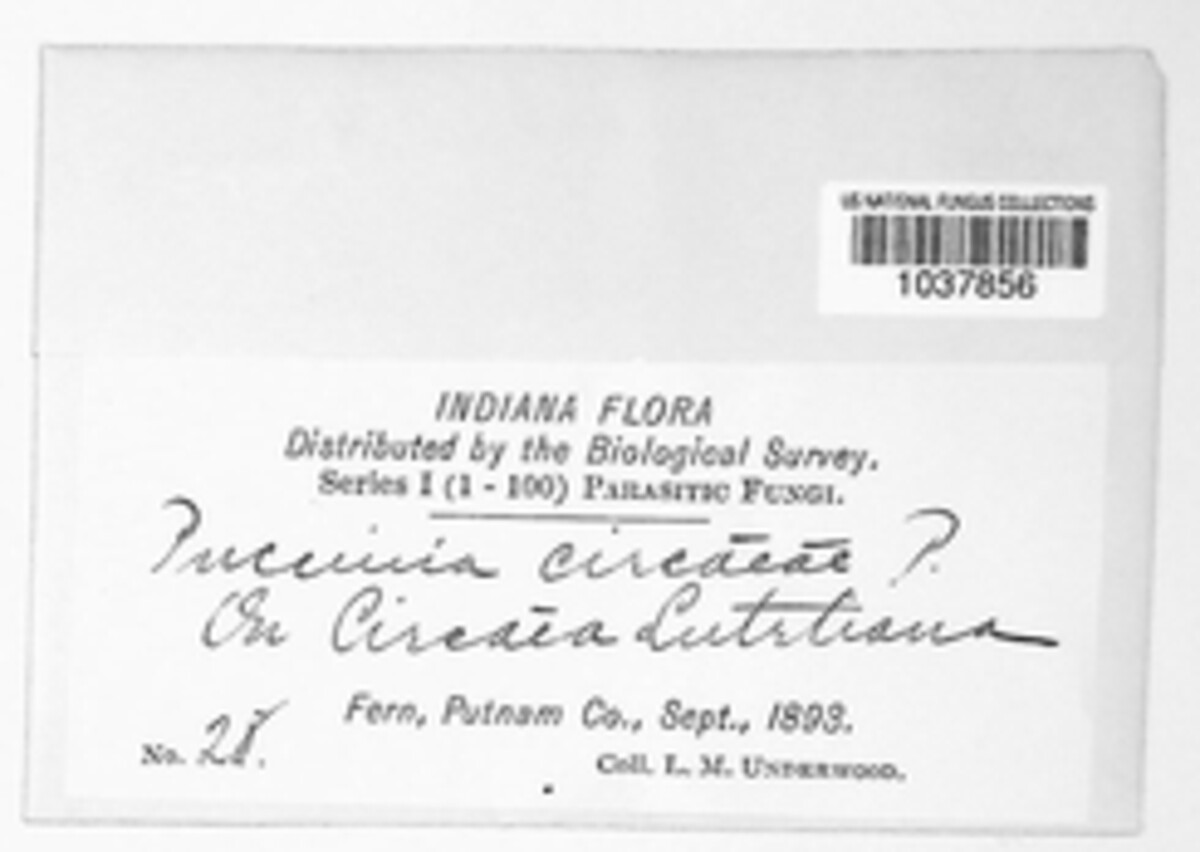 US NATIONAL FUNGUS COLLECTIONS
1037856
INDIANA FLORA
Distributed by the Biological Survey.
Series I (1 - 100) PARASITIC FUNGI.
Puccinia circaeae P.
On Circaea Lutetiana
Fern, Putnam Co., Sept., 1893.
No. 28.
Coll. L. M. UNDERWOOD.